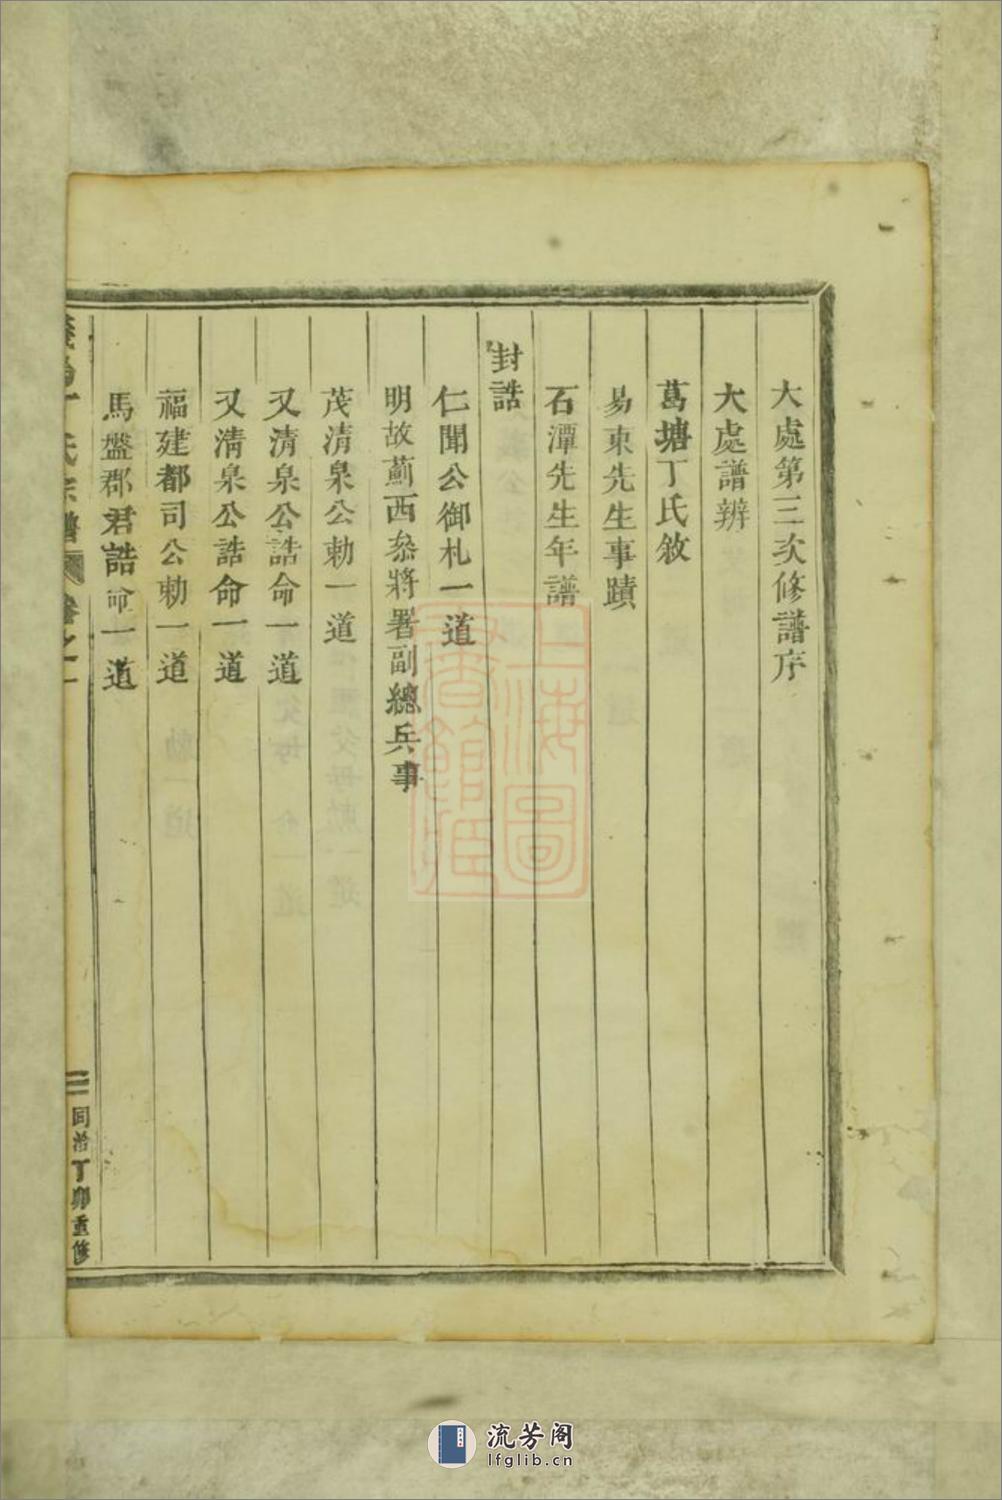 大處第三次修譜序
大處譜辨
葛塘丁氏敘
易東先生事蹟
石潭先生年譜
封誥
仁聞公御札一道
明故薊西叅將署副總兵事
茂清泉公勅一道
又清泉公誥命一道
又清泉公誥命一道
福建都司公勅一道
馬盤郡君誥命一道
丁氏宗譜 卷之一
三 同治丁卯重修
上海圖書館藏
流芳阁
lfglib.cn